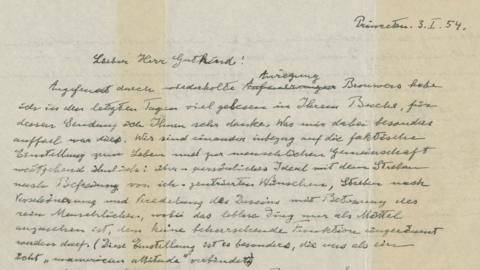 Princeton. 3. I. 54.
Lieber Herr Gutkind!
Angefeuert durch wiederholte Anregung Brouwers habe
ich in den letzten Tagen viel gelesen in Ihrem Buche, für
dessen Sendung ich Ihnen sehr danke. Was mir dabei besonders
auffiel war dies. Wir sind einander inbezug auf die faktische
Einstellung zum Leben und zur menschlichen Gemeinschaft
weitgehend ähnlich: über-persönliches Ideal mit dem Streben
nach Befreiung von ich-zentrierten Wünschen, Streben nach
Verschönerung und Veredelung des Daseins mit Betonung des
rein Menschlichen, wobei das leblose Ding nur als Mittel
anzusehen ist, dem keine beherrschende Funktion eingeräumt
werden darf. (Diese Einstellung ist es besonders, die uns als ein
echt „unamerican attitude“ verbindet)